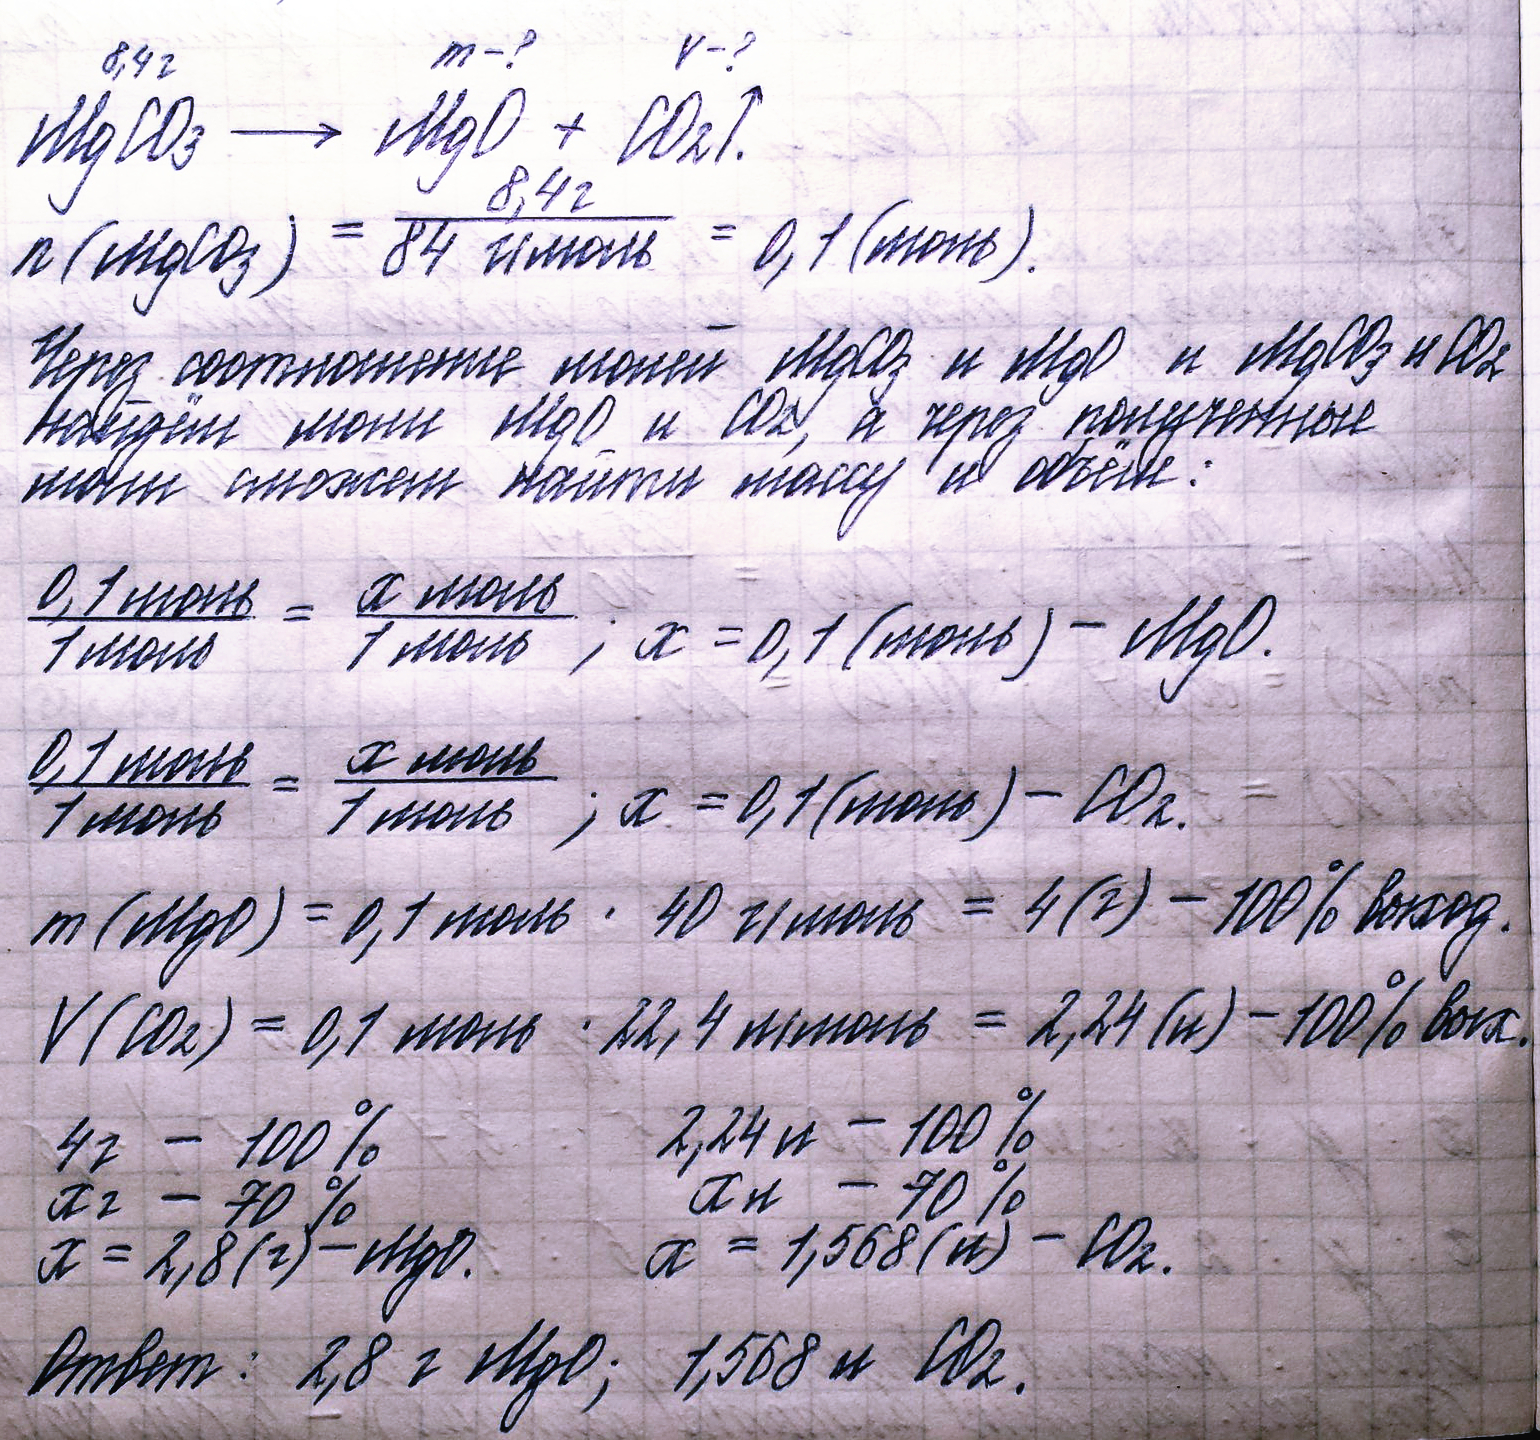 8,4г m-? V-?
MgCO3 → MgO + CO2↑.
n(MgCO3) = 8,4г / 84 г/моль = 0,1 (моль).
Через соотношение молей MgCO3 и MgO и MgCO3 и CO2
найдём моли MgO и CO2, а через полученные
моли сможем найти массу и объём:
0,1 моль / 1 моль = x моль / 1 моль ; x = 0,1 (моль) – MgO.
0,1 моль / 1 моль = x моль / 1 моль ; x = 0,1 (моль) – CO2.
m(MgO) = 0,1 моль · 40 г/моль = 4(г) – 100% выход.
V(CO2) = 0,1 моль · 22,4 л/моль = 2,24(л) – 100% вых.
4г – 100% 2,24л – 100%
xг – 70% xл – 70%
x = 2,8(г) – MgO. x = 1,568(л) – CO2.
Ответ: 2,8 г MgO; 1,568 л CO2.